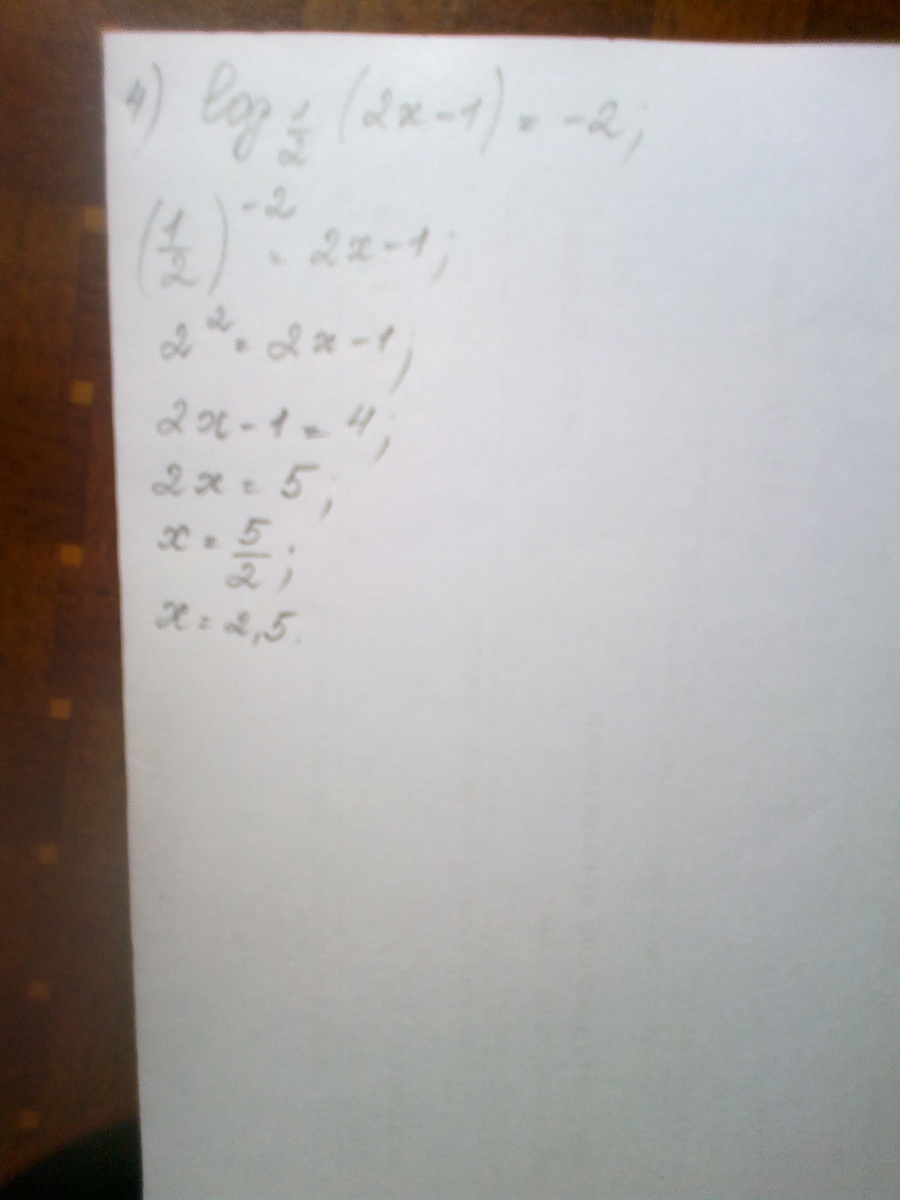 4) log_{1/2} (2x-1) = -2;
(1/2)^{-2} = 2x-1;
2^2 = 2x-1;
2x-1 = 4;
2x = 5;
x = 5/2;
x = 2,5.